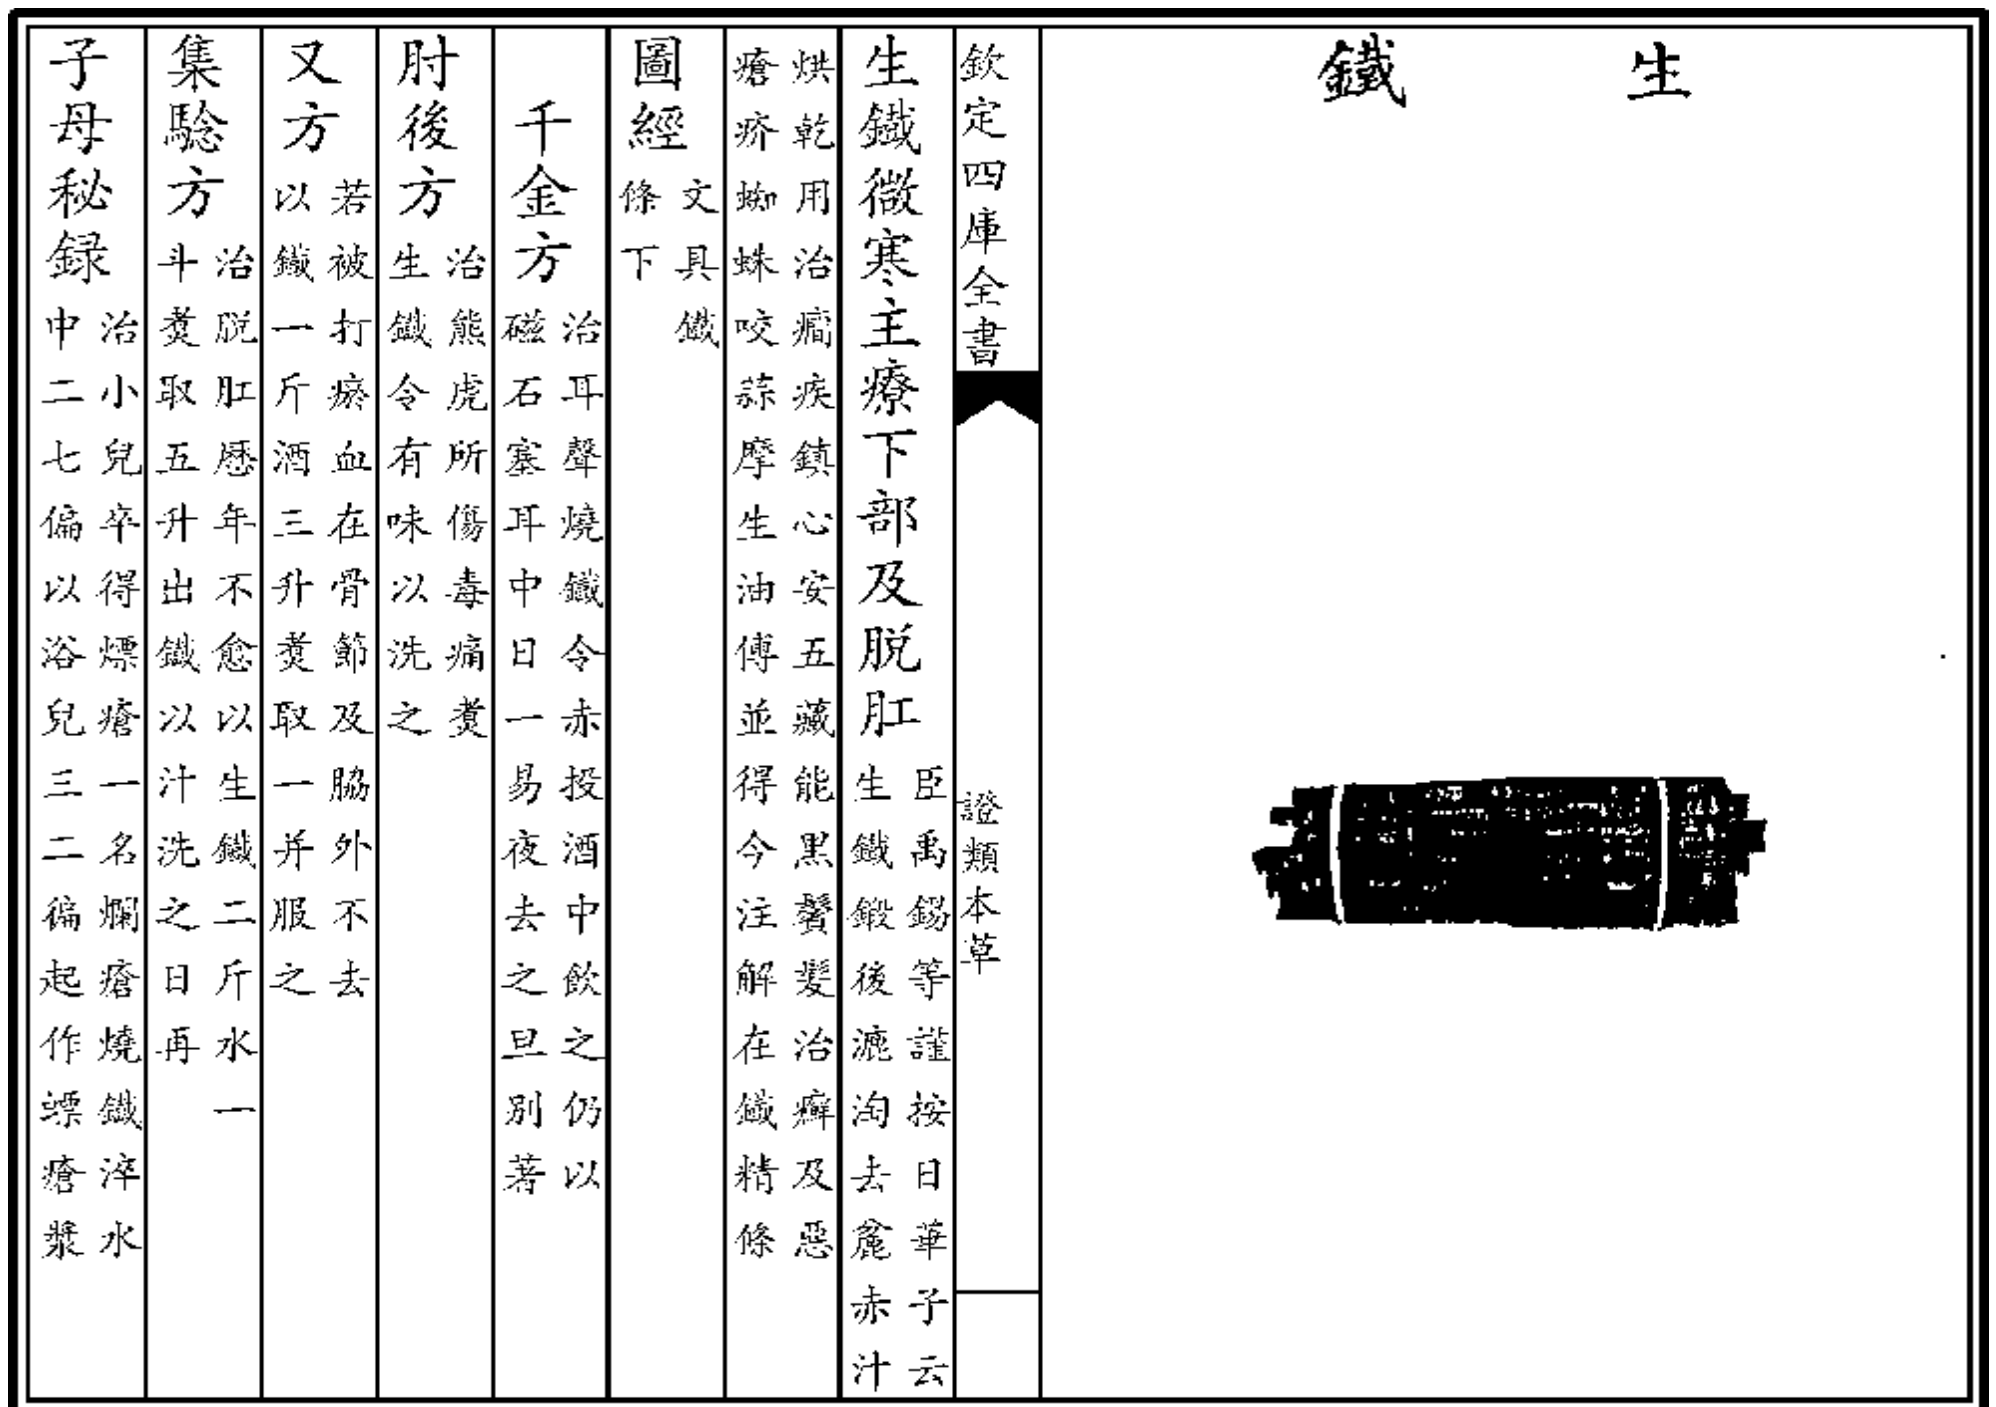 生鐵
欽定四庫全書
證類本草
生鐵微寒主療下部及脫肛
臣禹錫等謹按日華子云
生鐵鍛後漉淘去麄赤汁
烘乾用治癎疾鎮心安五藏能黑鬢髮治癬及惡
瘡疥蜘蛛咬蒜摩生油傅並得今注解在鐵精條
圖經
文具鐵
條下
千金方
治耳聾燒鐵令赤投酒中飲之仍以
磁石塞耳中日一易夜去之旦別著
肘後方
治熊虎所傷毒痛煑
生鐵令有味以洗之
又方
若被打瘀血在骨節及脇外不去
以鐵一斤酒三升煑取一升服之
集驗方
治脫肛厯年不愈以生鐵二斤水一
斗煑取五升出鐵以汁洗之日再
子母秘録
治小兒卒得熛瘡一名爛瘡燒鐵淬水
中二七徧以浴兒三二徧起作熛瘡漿